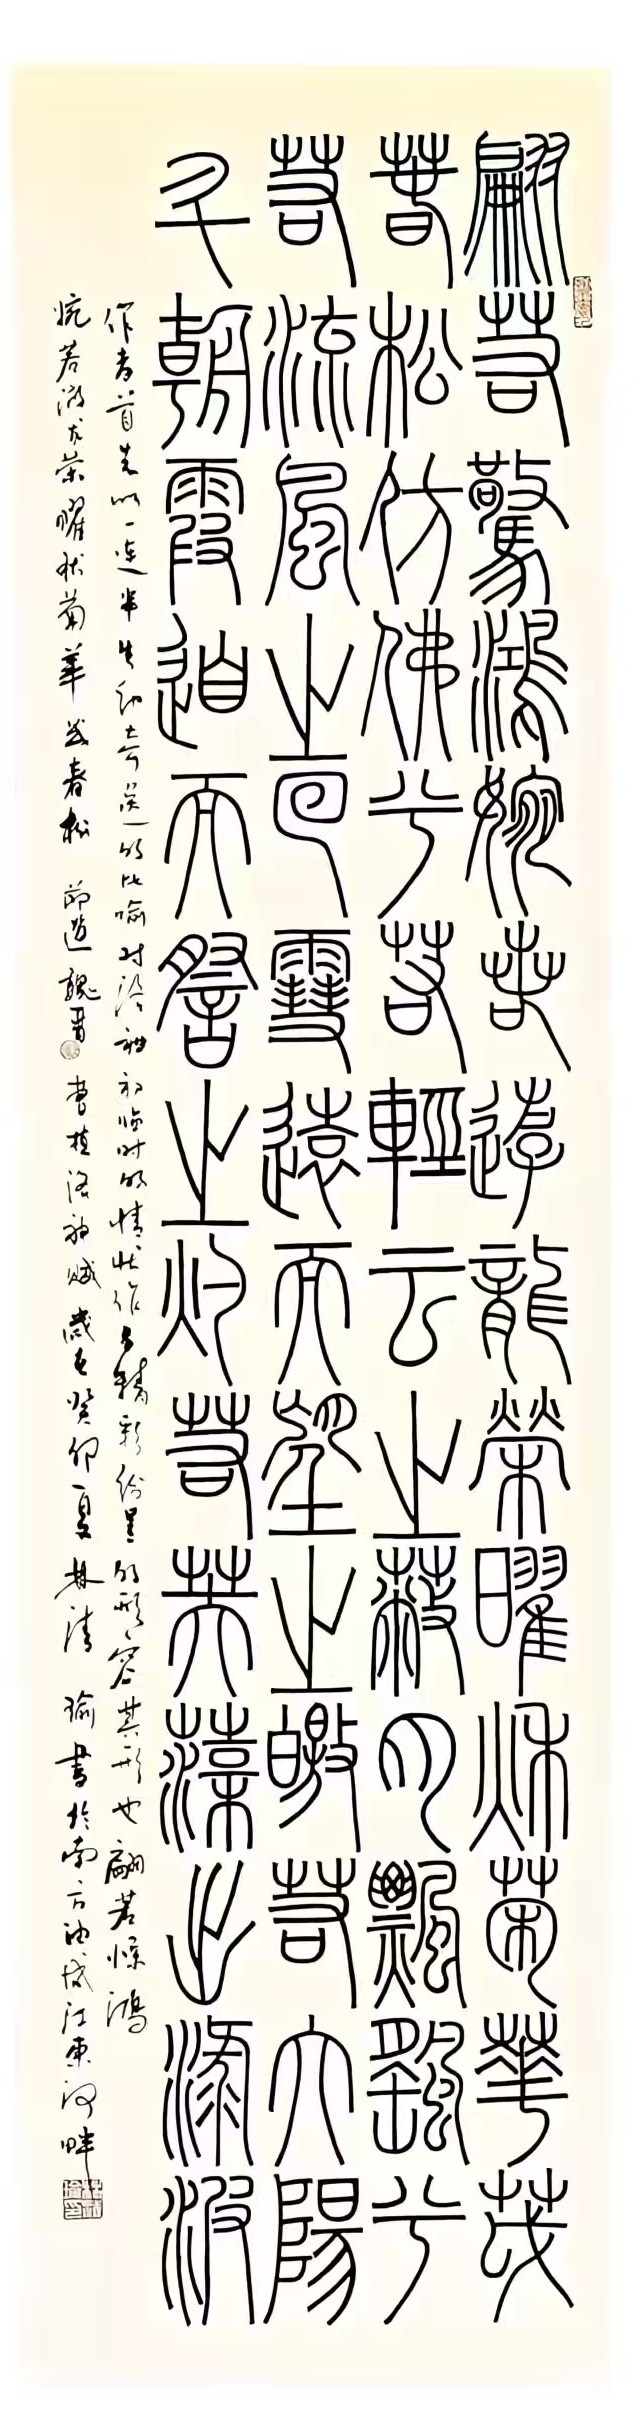 翩若驚鴻婉若遊龍榮曜秋菊華茂
春松仿佛兮若輕云之蔽月飄颻兮
若流風之回雪遠而望之皦若太陽
升朝霞迫而詧之灼若芙蕖出淥波
作者首先以一连串生动奇逸的比喻对洛神初临时的情状作了精彩纷呈的形容其形也翩若惊鸿
婉若游龙荣曜秋菊华茂春松 节选魏晋曹植洛神赋岁在癸卯夏林清瑜書於南方油城江東河畔